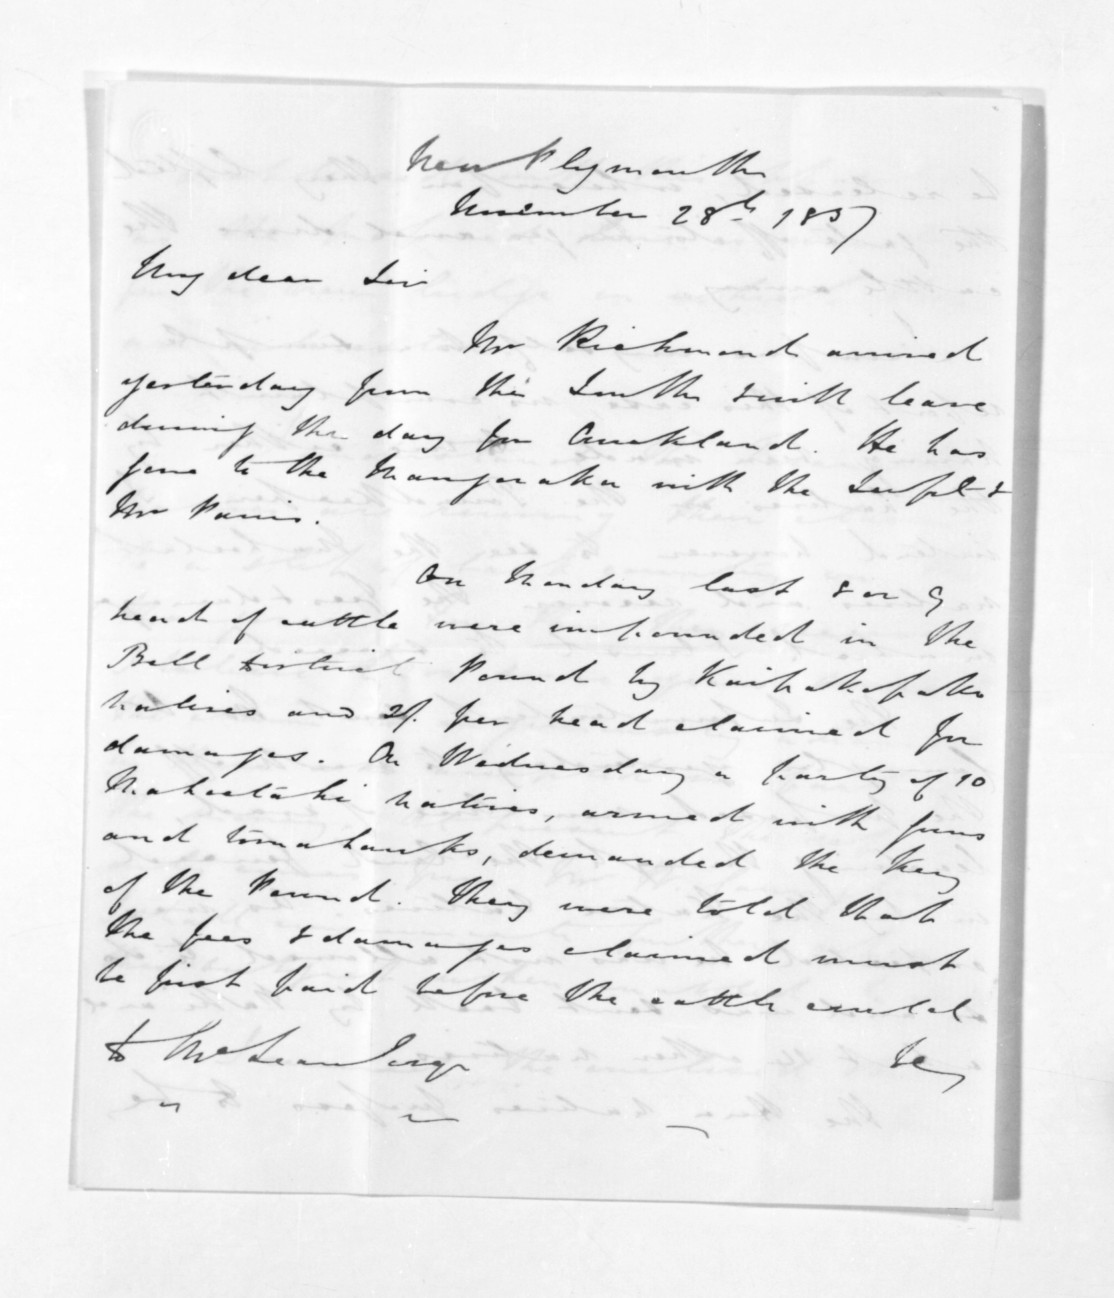 New Plymouth
November 28th 1857
My dear Sir
Mr Richmond arrived
yesterday from the South & will leave
during the day for Auckland. He has
gone to the Mangoraka with the Supt &
Mr Parris.
On Monday last 8 or 9
head of cattle were impounded in the
Bell District Pound by Kaipakopako
natives and 2/. per head claimed for
damages. On Wednesday a party of 10
Mahoetahi natives, armed with guns
and tomahawks, demanded the key
of the Pound. They were told that
the fees & damages claimed must
be first paid before the cattle could
be,
D McLean Esqr